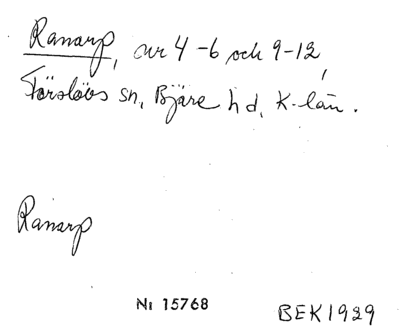 Ranarp, nr 4-6 och 9-12,
Förslövs sn, Bjäre hd, K-län.
Ranarp
Nr 15768
BEK1929